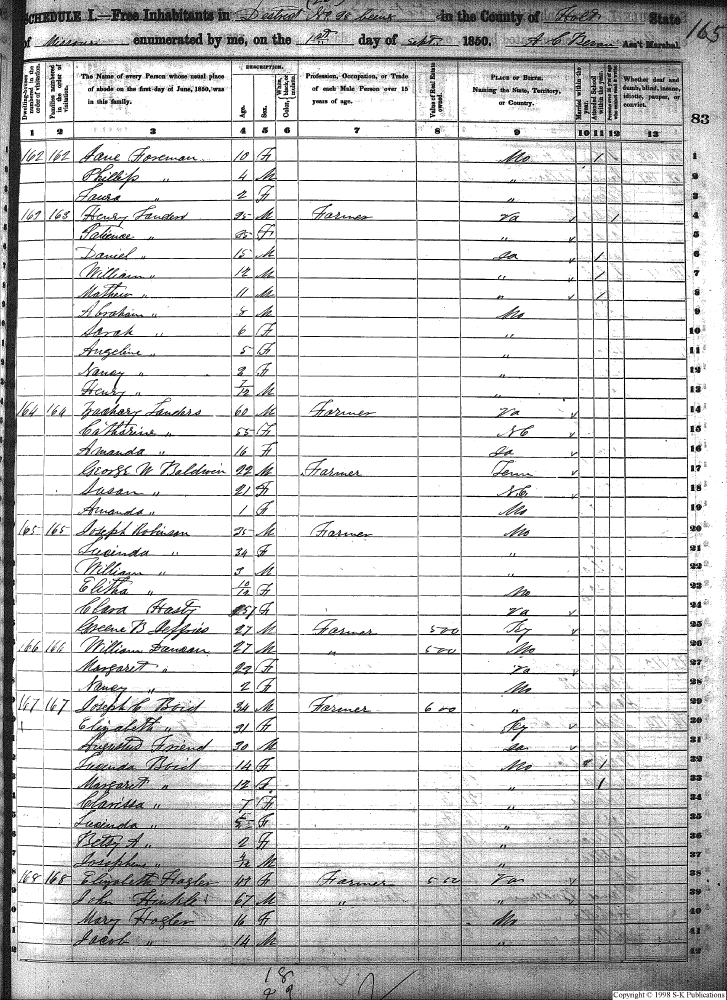 165
SCHEDULE I.—Free Inhabitants in District No. 95 in the County of Holt State
of Missouri enumerated by me, on the 1st day of Sept. 1850. A. C. Bevan Ass't Marshal.
83
Dwelling-houses numbered in the order of visitation.
Families numbered in the order of visitation.
The Name of every Person whose usual place of abode on the first day of June, 1850, was in this family.
DESCRIPTION.
Age.
Sex.
White, black, or mulatto.
Color,
Profession, Occupation, or Trade of each Male Person over 15 years of age.
Value of Real Estate owned.
PLACE OF BIRTH. Naming the State, Territory, or Country.
Married within the year.
Attended School within the year.
Persons over 20 y'rs of age who cannot read & write.
Whether deaf and dumb, blind, insane, idiotic, pauper, or convict.
1 2 3 4 5 6 7 8 9 10 11 12 13
162 162 Jane Foreman 10 F Mo 1 1
Phillip " 4 M " 2
Laura " 2 F " 3
163 163 Henry Sanders 35 M Farmer Va 1 4
Patience " 35 F " 5
Daniel " 15 M 1 6
William " 12 M " 1 7
Mathew " 11 M " 1 8
Abraham " 8 M Mo 9
Sarah " 6 F " 10
Angeline " 5 F " 11
Nancy " 2 F " 12
Henry " 7/12 M " 13
164 164 Zachary Sanders 60 M Farmer Va 14
Catharine " 55 F NC 15
Amanda " 16 F 16
George W Baldwin 22 M Farmer Tenn 17
Susan " 21 F N.C. 18
Amanda " 1 F Mo 19
165 165 Joseph Robinson 35 M Farmer Mo 20
Lucinda " 34 F " 21
William " 3 M " 22
Elitha " 10/12 F Mo 23
Clara Hasty F Va 24
Greene B Jeffries 27 M Farmer 500 Ky 25
166 166 William Duncan 27 M " 500 Mo 26
Margaret " 22 F Va 27
Nancy " 2 F Mo 28
167 167 Joseph C Boid 34 M Farmer 600 " 29
Elizabeth " 31 F Ky 30
Augusted Friend 30 M 31
Lucinda Boid 14 F Mo 1 32
Margaret " 12 F " 1 33
Clarissa " 7 F " 34
Lucinda " 5 F " 35
Betsy A " 2 F " 36
Josephus " M " 37
168 168 Elizabeth Hagler 47 F Farmer 500 Va 38
John Hinkle 67 M " " 39
Mary Hagler 16 F Mo 40
Jacob " 14 M " 41
42
18
Copyright © 1998 S-K Publications